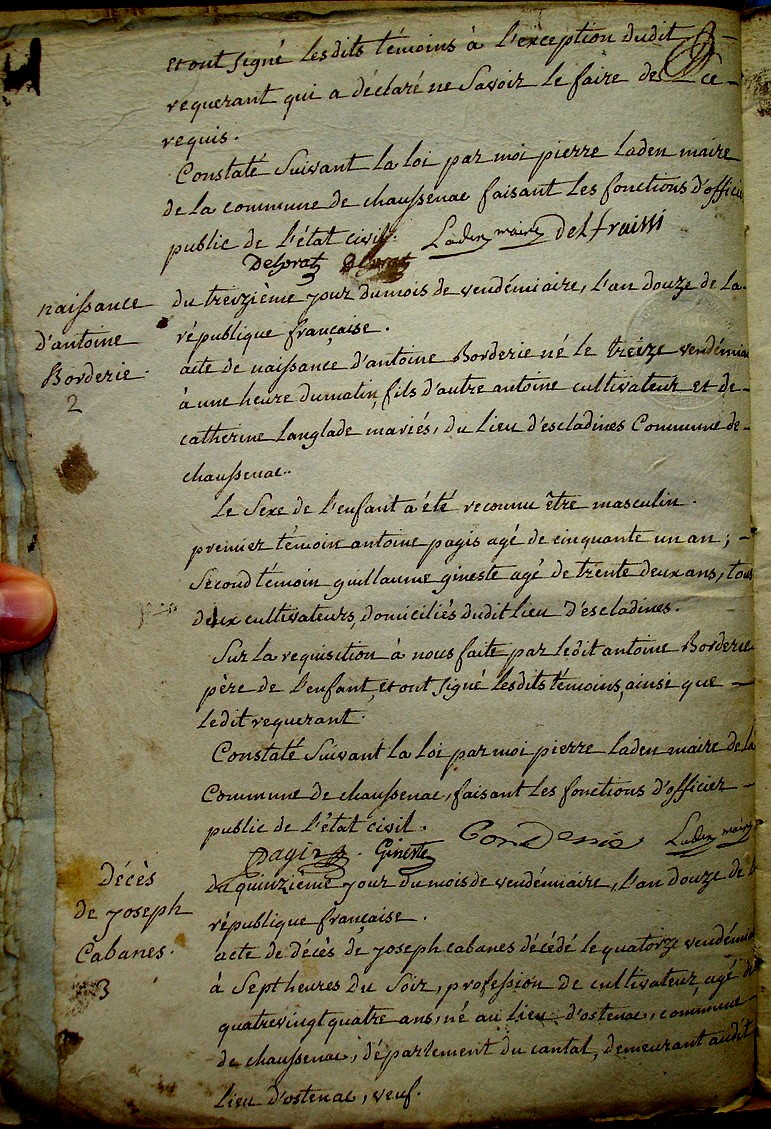 et ont signé lesdits témoins à l'exception dudit
requerant qui a déclaré ne Savoir le faire de ce -
requis.
Constaté Suivant la loi par moi pierre laden maire
de la commune de chaussenac faisant les fonctions d'officier
public de l'état civil. Laden maire delfraissi
Delprat
naissance
d'antoine
Borderie.
2
du treizième jour du mois de vendémiaire, l'an douze de la
république française.
acte de naissance d'antoine Borderie né le treize vendémiaire
à une heure du matin, fils d'autre antoine cultivateur et de -
catherine Langlade mariés, du Lieu d'escladines Commune de -
chaussenac.
Le Sexe de l'enfant a été reconnu être masculin.
premier témoin antoine pagis agé de cinquante un an ; -
Second témoin guillaume gineste agé de trente deux ans, tous
deux cultivateurs, domiciliés dudit Lieu d'escladines.
Sur la requisition à nous faite par ledit antoine Borderie
père de l'enfant, et ont signé lesdits témoins, ainsi que -
ledit requerant.
Constaté Suivant la loi par moi pierre laden maire de la
Commune de chaussenac, faisant les fonctions d'officier -
public de l'état civil. Laden maire
pagis. Gineste
Décès
de joseph
Cabanes.
3
du quinzième jour du mois de vendémiaire, l'an douze de la
république française.
acte de décès de joseph cabanes décédé le quatorze vendémiaire
à Sept heures du Soir, profession de cultivateur, agé de
quatre vingt quatre ans, né au Lieu d'ostenac, commune -
de chaussenac, département du cantal, demeurant audit
Lieu d'ostenac, veuf.